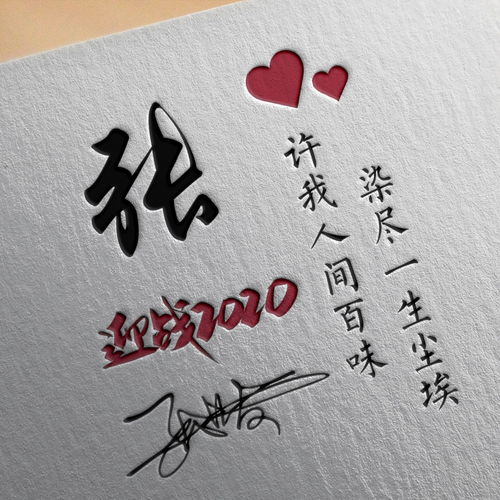 张
迎战2020
许我人间百味
染尽一生尘埃